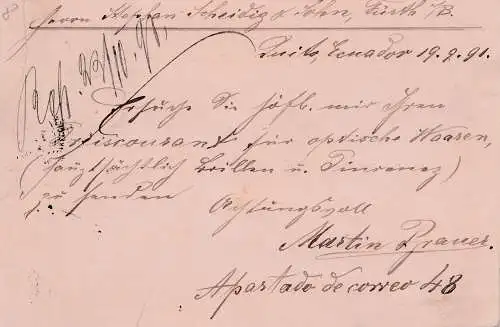 Herrn Stephan Scheidig & Sohn, Fürth i/B.
Quito, Ecuador 19.9.91.
Ersuche Sie höfl. mir Ihren
Preiscourant für optische Waaren,
(hauptsächtlich Brillen u. Pincenez)
zu senden
Achtungsvoll
Martin Brauer.
Apartado de correo 48